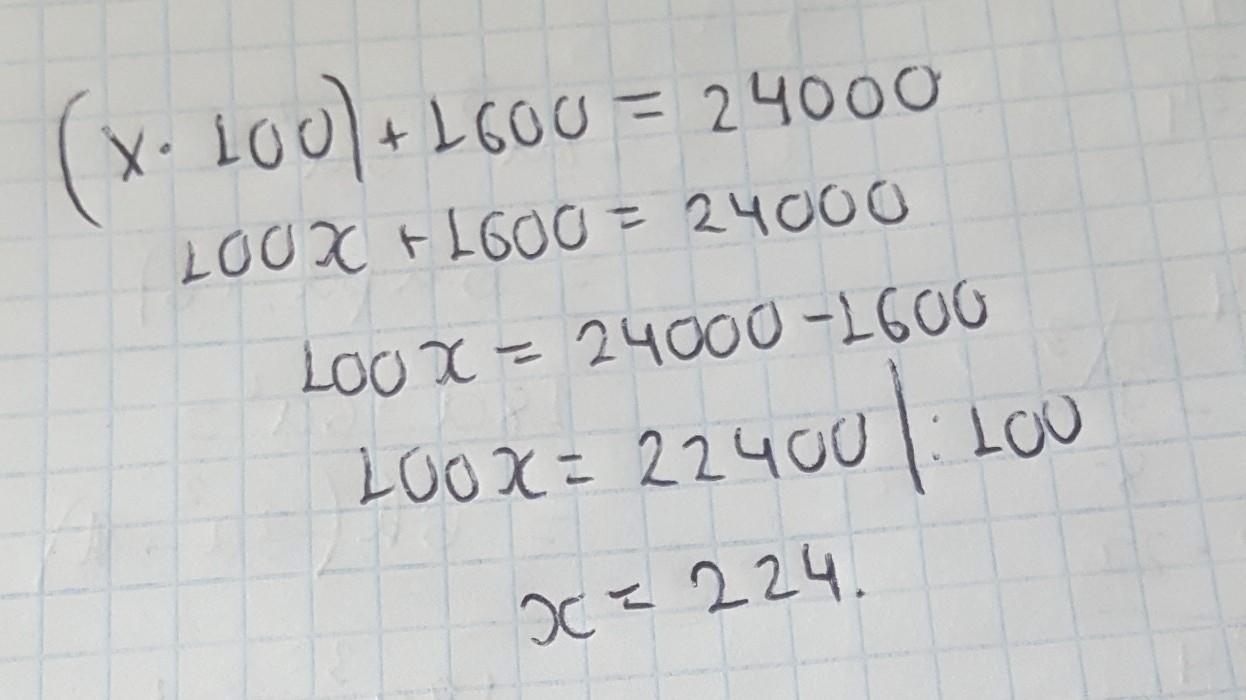 (x · 100) + 1600 = 24000
100x + 1600 = 24000
100x = 24000 - 1600
100x = 22400 | : 100
x = 224.